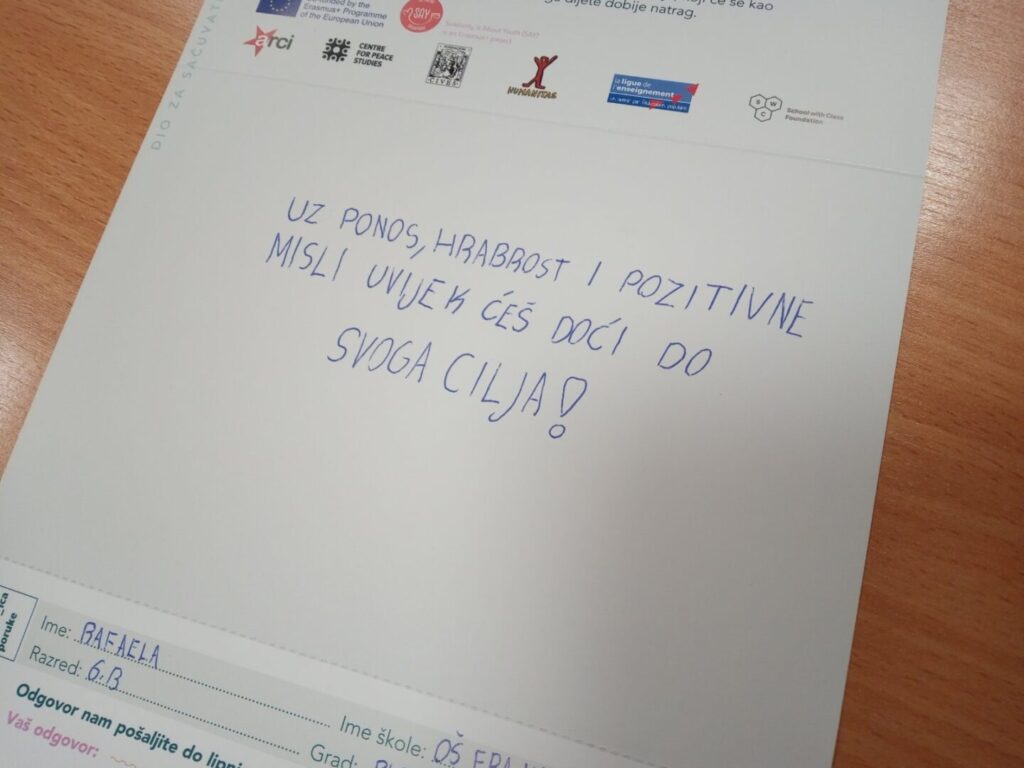 ga dijete dobije natrag.
Erasmus+ Programme
of the European Union
SAY
Solidarity is About Youth (SAY)
is an Erasmus+ project
arci
CENTRE
FOR PEACE
STUDIES
HUMANITAS
la ligue de
l'enseignement
School with Class
Foundation
DIO ZA SAČUVAT
UZ PONOS, HRABROST I POZITIVNE
MISLI UVIJEK ĆEŠ DOĆI DO
SVOGA CILJA!
poruke
Ime: RAFAELA
Razred: 6.B
Ime škole: OŠ
Grad:
Odgovor nam pošaljite do
Vaš odgovor: